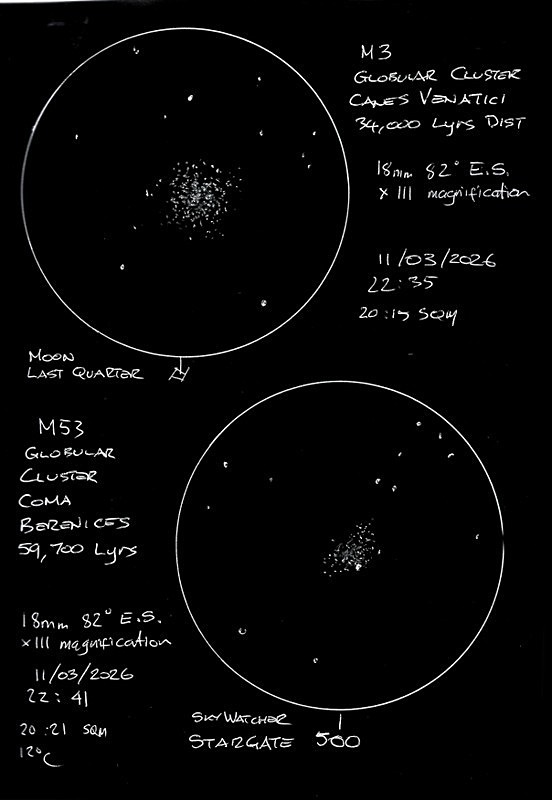 M3
GLOBULAR CLUSTER
CANES VENATICI
34,000 Lyrs DIST
18mm 82° E.S.
x 111 magnification
11/03/2026
22:35
20:15 SQM
MOON
LAST QUARTER
M53
GLOBULAR
CLUSTER
COMA
BERENICES
59,700 Lyrs
18mm 82° E.S.
x 111 magnification
11/03/2026
22:41
20:21 SQM
12°C
SKYWATCHER
STARGATE 500